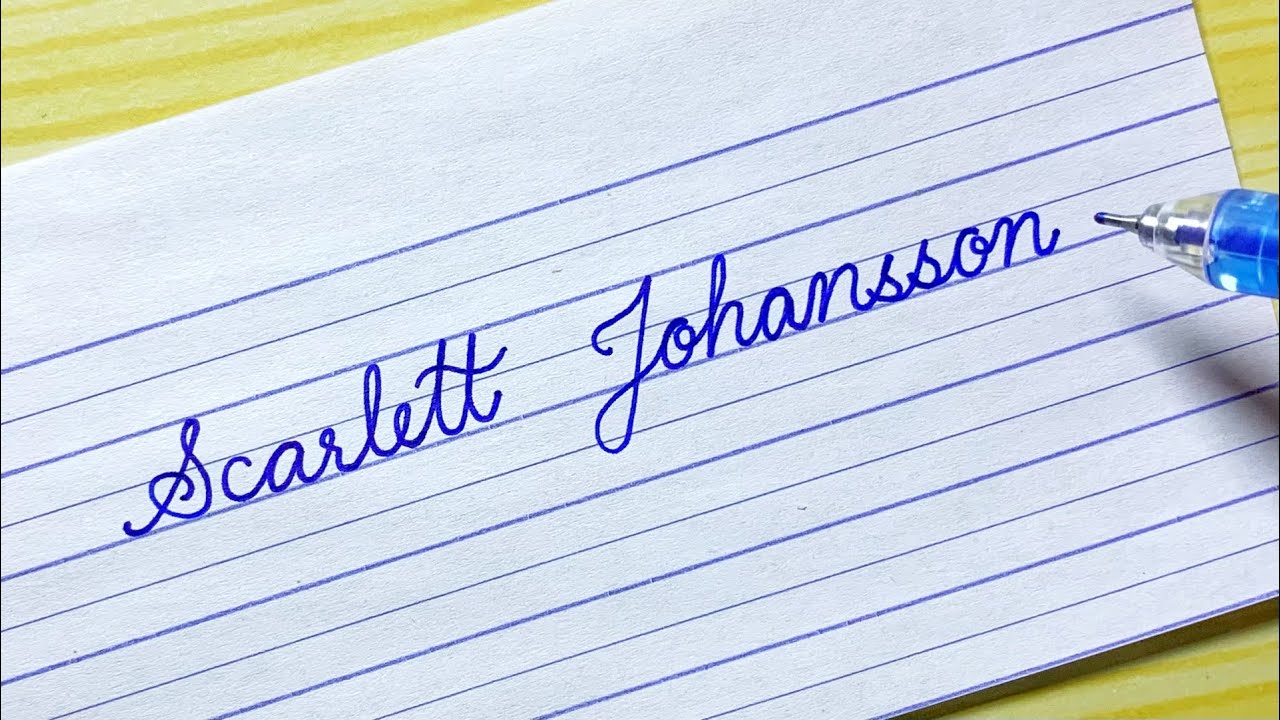 Scarlett Johansson